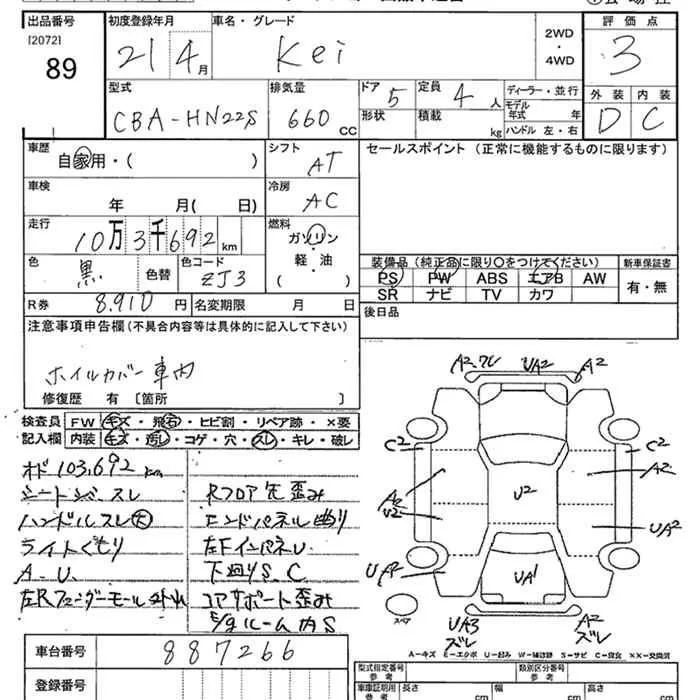 出品番号 初度登録年月 車名・グレード 2WD・4WD 評価点
[2072]
89 21 4月 Kei 3
型式 排気量 ドア 5 定員 4人 ディーラー・並行 外装 内装
CBA-HN22S 660 CC 形状 積載 kg モデル年式 年 D C
ハンドル 左・右
車歴 シフト セールスポイント (正常に機能するものに限ります)
自家用・( ) AT
車検 冷房
年 月( 日) AC
走行 燃料
10万3千692km ガソリン・軽・油( )
色 色替 色コード 装備品(純正品に限り○をつけてください) 新車保証書
黒 ZJ3 PS PW ABS エアB AW 有・無
R券 8.910円 名変期限 月 日 SR ナビ TV カワ
注意事項申告欄(不具合内容等は具体的に記入して下さい) 後日品
ホイルカバー車内
修復歴 有 〔箇所 〕
検査員 FW キズ・飛石・ヒビ割・リペア跡・×要
記入欄 内装 キズ・汚レ・コゲ・穴・スレ・キレ・破レ
オド103,692km
シート スレ Rフロア先歪み
ハンドルスレ大 エンドパネル曲り
ライトくもり 左FインパネU
A.U. 下廻りS.C
左Rフェンダーモール外れ コアサポート歪み
E/gルーム内S
A2.ワレ UA2 A2
C2 C2
A2 A2
U2 U2
UA2
UA2 UA1
スペア UA3 ズレ A2 ズレ
A-キズ E-エクボ U-凹み W-補修跡 S-サビ C-腐食 ××-交換済
車台番号 887266
登録番号
型式指定番号 参考 類別区分番号 参考
車庫証明用 参考 長さ cm 幅 cm 高さ cm